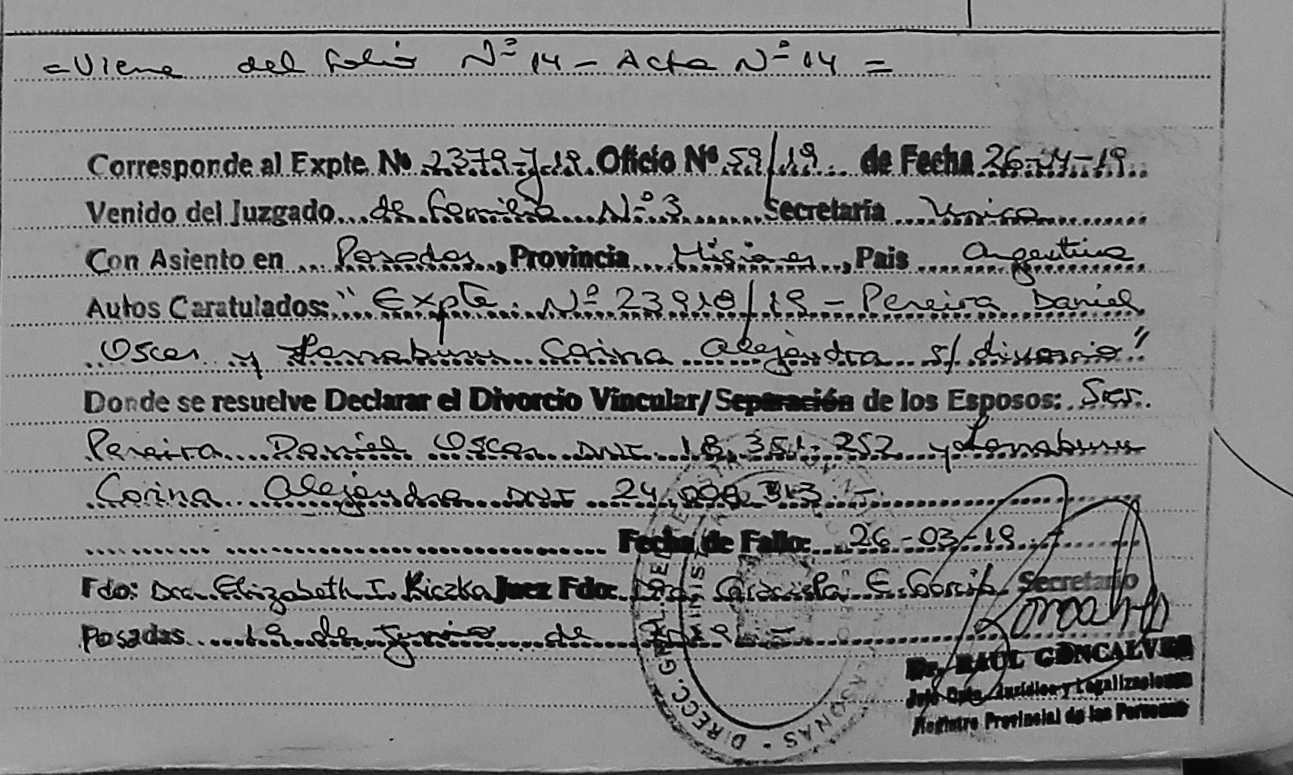 =Viene del folio Nº 14 - Acta Nº 14 =
Corresponde al Expte. Nº 2379-J-19. Oficio Nº 59/19 de Fecha 26-04-19
Venido del Juzgado de Familia Nº 3 Secretaría Unica
Con Asiento en Posadas, Provincia Misiones, Pais Argentina
Autos Caratulados: "Expte. Nº 23918/19 - Pereira Daniel
Oscar y Larraburu Corina Alejandra s/ divorcio"
Donde se resuelve Declarar el Divorcio Vincular/Separación de los Esposos: Sres.
Pereira Daniel Oscar DNI 18.351.252 y Larraburu
Corina Alejandra DNI 24. 313 -
Fecha de Fallo: 26-03-19
Fdo: Dra. Elizabeth I. Kiczka Juez Fdo: Dra. E. Secretario
Posadas 19 de Junio de
Dr. RAUL GONCALVES
Jefe Dpto. Jurídico y Legalizaciones
Registro Provincial de las Personas
DIRECC. GRAL. DE PERSONAS